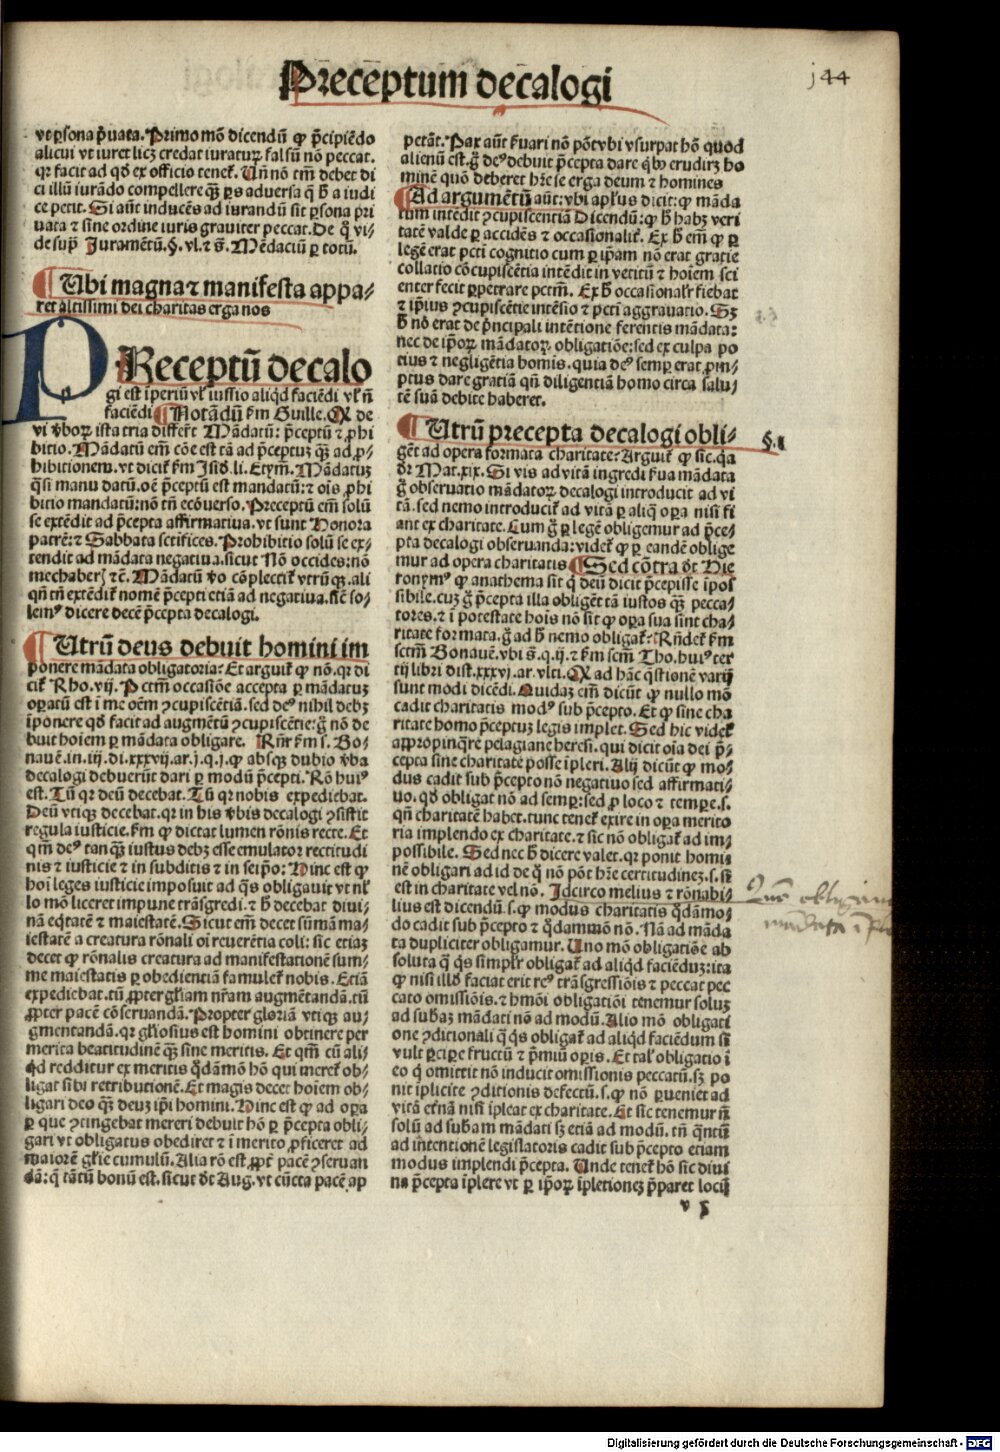 Preceptum decalogi
144
vt ꝑsona pͥuata. Primo mō dicendū ꝙ p̄cipiēdo
alicui vt iuret licꝫ credat iuraturꝫ falsū nō peccat.
qꝛ facit ad qd̄ ex officio teneť. Uñ nō tñ debet di
ci illū iurādo compellere qꝫ ꝑs aduersa q̄ ħ a iudi
ce petit. Si aūt inducēs ad iurandū sit ꝑsona pri
uata ⁊ sine ordine iuris grauiter peccat. De q̄ vi-
de supͣ Juramētū. §. vl. ⁊ s̄. Mēdaciū ꝑ totū.
Ubi magna ⁊ manifesta appa-
ret altissimi dei charitas erga nos
PReceptū decalo
gi est īperiū vl̓ iussio aliqd̓ faciēdi vl̓ ñ
faciēdi Notādū ẜm Guille. Q de
vi v̓boꝝ ista tria differēt Mādatū: p̄ceptū ⁊ ꝓhi
bitio. Mādatū em̄ cōe est tā ad p̄ceptuꝫ qꝫ ad ꝓ-
hibitionem. vt diciť ẜm Jsid. li. Etym. Mādatuꝫ
q̄si manu datū. oē p̄ceptū est mandatū: ⁊ oīs ꝓhi
bitio mandatū: nō tñ ecōuerso. Preceptū em̄ solū
se extēdit ad p̄cepta affirmatiua. vt sunt Honora
patrē: ⁊ Sabbata sctifices. Prohibitio solū se ex-
tendit ad mādata negatiua. sicut Nō occides: nō
mechaberꝭ ⁊c̄. Mādatū v̓o cōplectiť vtrūqꝫ. ali
qñ tñ extēdiť nomē p̄cepti etiā ad negatiua. sic̄ so-
lemꝰ dicere decē p̄cepta decalogi.
Utrū deus debuit homini im
ponere mādata obligatoria: Et arguiť ꝙ nō. qꝛ di
ciť Rho. vij. Pctm̄ occasiōe accepta ꝑ mādatuꝫ
oꝑatū est ī me oēm ꝯcupiscētiā. sed deꝰ nihil debꝫ
īponere qd̄ facit ad augmētū ꝯcupiscētie: g̊ nō de
buit hoīem ꝑ mādata obligare. Rñr ẜm s. Bo-
nauē. in. iij. di. xxxvij. ar. j. q. j. ꝙ absqꝫ dubio v̓ba
decalogi debuerūt dari ꝑ modū p̄cepti. Rō huiꝰ
est. Tū qꝛ deū decebat. Tū qꝛ nobis expediebat.
Deū vtiqꝫ decebat. qꝛ in his v̓bis decalogi ꝯsistit
regula iusticie. ẜm ꝙ dictat lumen rōnis recte. Et
qm̄ deꝰ tanqꝫ iustus debꝫ esse emulator rectitudi
nis ⁊ iusticie ⁊ in subditis ⁊ in seip̄o: Hinc est ꝙ
hoī leges iusticie imposuit ad q̄s obligauit vt nl̓
lo mō liceret impune trāsgredi. ⁊ ħ decebat diui-
nā eqtatē ⁊ maiestatē. Sicut em̄ decet sūmā ma-
iestatē a creatura rōnali oī reuerētia coli: sic etiaꝫ
decet ꝙ rōnalis creatura ad manifestationē sum-
me maiestatis ꝑ obedientiā famuleť nobis. Etiā
expediebat. tū ꝓpter gl̓iam nr̄am augmētandā. tū
ꝓpter pacē cōseruandā. Propter gloriā vtiqꝫ au-
gmentandā. qꝛ gl̓iosius est homini obtinere per
merita beatitudinē qꝫ sine meritis. Et qm̄ cū ali-
qd redditur ex meritis qdāmō hō qui mereť ob-
ligat sibi retributionē. Et magis decet hoīem ob-
ligari deo qꝫ deuꝫ ip̄i homini. Hinc est ꝙ ad oꝑa
ꝑ que ꝯtingebat mereri debuit hō ꝑ p̄cepta obli-
gari vt obligatus obediret ⁊ ī merito ꝓficeret ad
maiorē gl̓ie cumulū. Alia rō est ꝓpt̓ pacē ꝯseruan
dā: q̄ tātū bonū est. sicut dt̓ Aug. vt cūcta pacē ap
petāt. Pax aūt ẜuari nō pōt vbi vsurpat hō quod
alienū est. g̊ deꝰ debuit p̄cepta dare qͥbꝰ erudirꝫ ho
minē quō deberet hr̄e se erga deum ⁊ homines
Ad argumētū aūt: vbi apl̓us dicit: ꝙ māda
tum intēdit ꝯcupiscentiā Dicendū: ꝙ ħ habꝫ veri
tatē valde ꝑ accidēs ⁊ occasionaliť. Ex ħ em̄ ꝙ ꝑ
legē erat pctī cognitio cum ꝑ ip̄am nō erat gratie
collatio cōcupiscētia intēdit in vetitū ⁊ hoīem sci
enter fecit ꝑpetrare pctm̄. Ex ħ occasional̓r fiebat
⁊ ip̄ius ꝯcupiscētie intēsio ⁊ pctī aggrauatio. Sꝫ
ħ nō erat de pͥncipali intētione ferentis mādata:
nec de ip̄oꝝ mādatoꝝ obligatiōe: sed ex culpa po
tius ⁊ negligētia homīs. quia deꝰ semꝑ erat ꝓm-
ptus dare gratiā qñ diligentiā homo circa salu-
tē suā debite haberet.
Utrū precepta decalogi obli-
§. 1
gēt ad opera formata charitate: Arguiť ꝙ sic. qꝛ
dr̄ Mat. xix. Si vis ad vitā ingredi ẜua mādata
g̊ obseruatio mādatoꝝ decalogi introducit ad vi
tā. sed nemo introduciť ad vitā ꝑ aliq̄ oꝑa nisi fi
ant ex charitate. Cum g̊ ꝑ legē obligemur ad p̄ce-
pta decalogi obseruanda: videť ꝙ ꝑ eandē oblige
mur ad opera charitatis Sed cōtra dt̓ Hie
ronymꝰ ꝙ anathema sit q̄ deū dicit p̄cepisse īpos
sibile. cuꝫ g̊ p̄cepta illa obligēt tā iustos qꝫ pecca-
tores. ⁊ ī potestate hoīs nō sit ꝙ oꝑa sua sint cha-
ritate formata. g̊ ad ħ nemo obligať: Rñdeť ẜm
sctm̄ Bonauē. vbi s̄. q. ij. ⁊ ẜm scm̄ Tho. huiꝰ ter
tij libri dist. xxxvj. ar. vlti. Q ad hāc q̄stionē varij
sunt modi dicēdi. Quidaꝫ em̄ dicūt ꝙ nullo mō
cadit charitatis modꝰ sub p̄cepto. Et ꝙ sine cha
ritate homo p̄ceptuꝫ legis implet. Sed hic videť
appropinqre pelagiane heresi. qui dicit oīa dei p̄-
cepta sine charitate posse īpleri. Alij dicūt ꝙ mo-
dus cadit sub p̄cepto nō negatiuo sed affirmati-
uo. qd̄ obligat nō ad semꝑ: sed ꝓ loco ⁊ tempꝛe. s.
qñ charitatē habet. tunc teneť exire in oꝑa merito
ria implendo ex charitate. ⁊ sic nō obligať ad im-
possibile. Sed nec ħ dicere valet. qꝛ ponit homi
nē obligari ad id de q̄ nō pōt hr̄e certitudineꝫ. s. si
est in charitate vel nō. Jdcirco melius ⁊ rōnabi-
lius est dicendū. s. ꝙ modus charitatis qdāmo-
do cadit sub p̄cepto ⁊ qdammō nō. Nā ad māda
ta dupliciter obligamur. Uno mō obligatiōe ab
soluta q̄ q̄s simpl̓r obligať ad aliqd faciēduꝫ: ita
ꝙ nisi illd̓ faciat erit reꝰ trāsgressiōis ⁊ peccat pec
cato omissiōis. ⁊ hmōi obligatiōi tenemur soluꝫ
ad sub̓aꝫ mādati nō ad modū. Alio mō obligati
one ꝯditionali q̄ q̄s obligať ad aliqd faciendum si
vult ꝑciꝑe fructū ⁊ p̄miū oꝑis. Et tal̓ obligatio ī
eo q̄ omittit nō inducit omissionis peccatū. sꝫ po
nit īplicite ꝯditionis defectū. s. ꝙ nō ꝑueniet ad
vitā et̓nā nisi īpleat ex charitate. Et sic tenemur ñ
solū ad sub̓am mādati sꝫ etiā ad modū. tñ q̄ntū
ad intentionē legislatoris cadit sub p̄cepto etiam
modus implendi p̄cepta. Unde teneť hō sic diui
na p̄cepta īplere vt ꝑ ip̄oꝝ īpletioneꝫ p̄paret locū
v 5
Digitalisierung gefördert durch die Deutsche Forschungsgemeinschaft - DFG